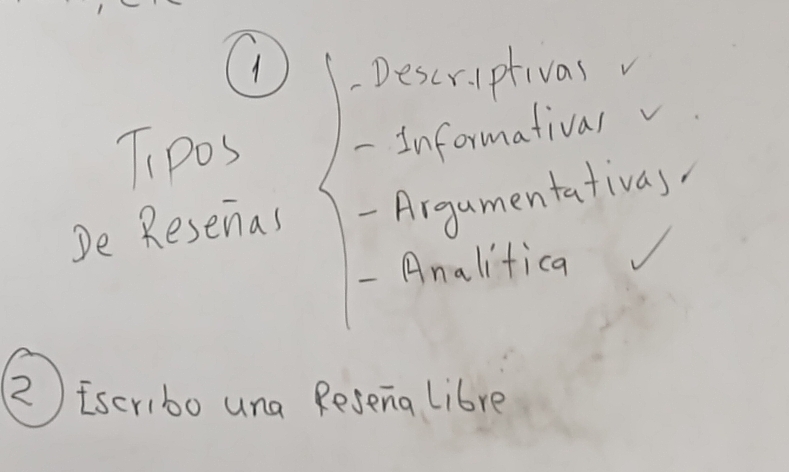 ①
Tipos
De Reseñas
- Descriptivas ✓
- Informativas ✓
- Argumentativas ✓
- Analítica ✓
② Escribo una Reseña Libre